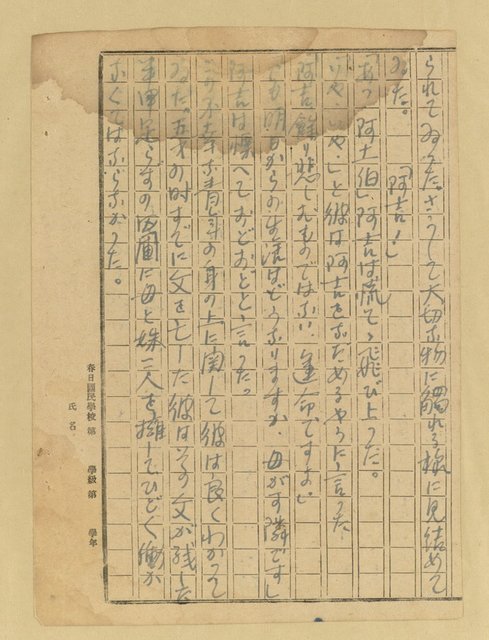 られてゐた。さうして大切な物に觸れる樣に見詰めて
ゐた。「阿吉！」
「あつ、阿土伯」阿吉は慌てゝ飛び上つた。
いや、いや、」と彼は阿吉をなだめるやうに言つた
「阿吉、餘り悲しむものではない、運命ですよ」
でも明日からの生活はどうなりますか、母がす隣ですし
阿吉は懼へておどおどと言った。
この不幸な青年の身の上に関して彼は良くわかって
ゐた。五才の時すでに父を亡した彼はその父が残した
半甲足らずの田圃に母と妹二人を擁してひどく働か
なくてはならなかつた。
春日國民學校 第 學級 第 學年
氏名